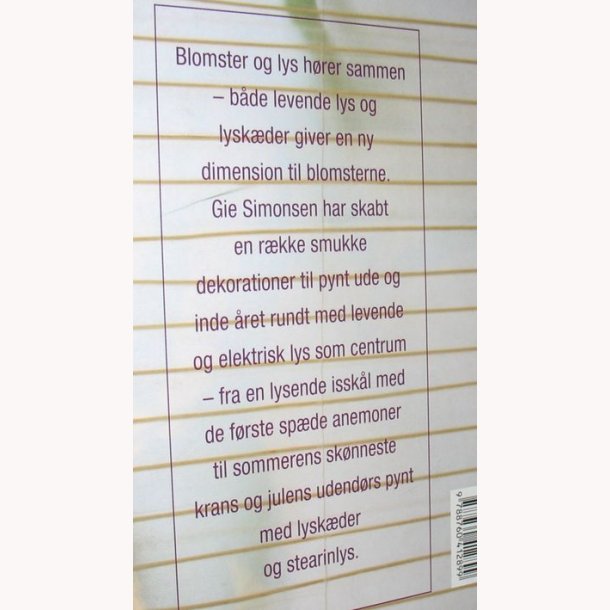 Blomster og lys hører sammen
– både levende lys og
lyskæder giver en ny
dimension til blomsterne.
Gie Simonsen har skabt
en række smukke
dekorationer til pynt ude og
inde året rundt med levende
og elektrisk lys som centrum
– fra en lysende isskål med
de første spæde anemoner
til sommerens skønneste
krans og julens udendørs pynt
med lyskæder
og stearinlys.
9 788760 412899